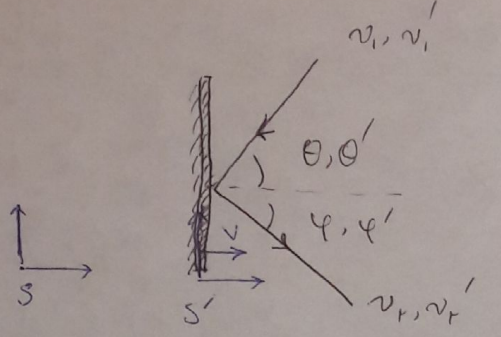 ν₁, ν₁′
θ, θ′
φ, φ′
v
S
S′
νᵣ, νᵣ′